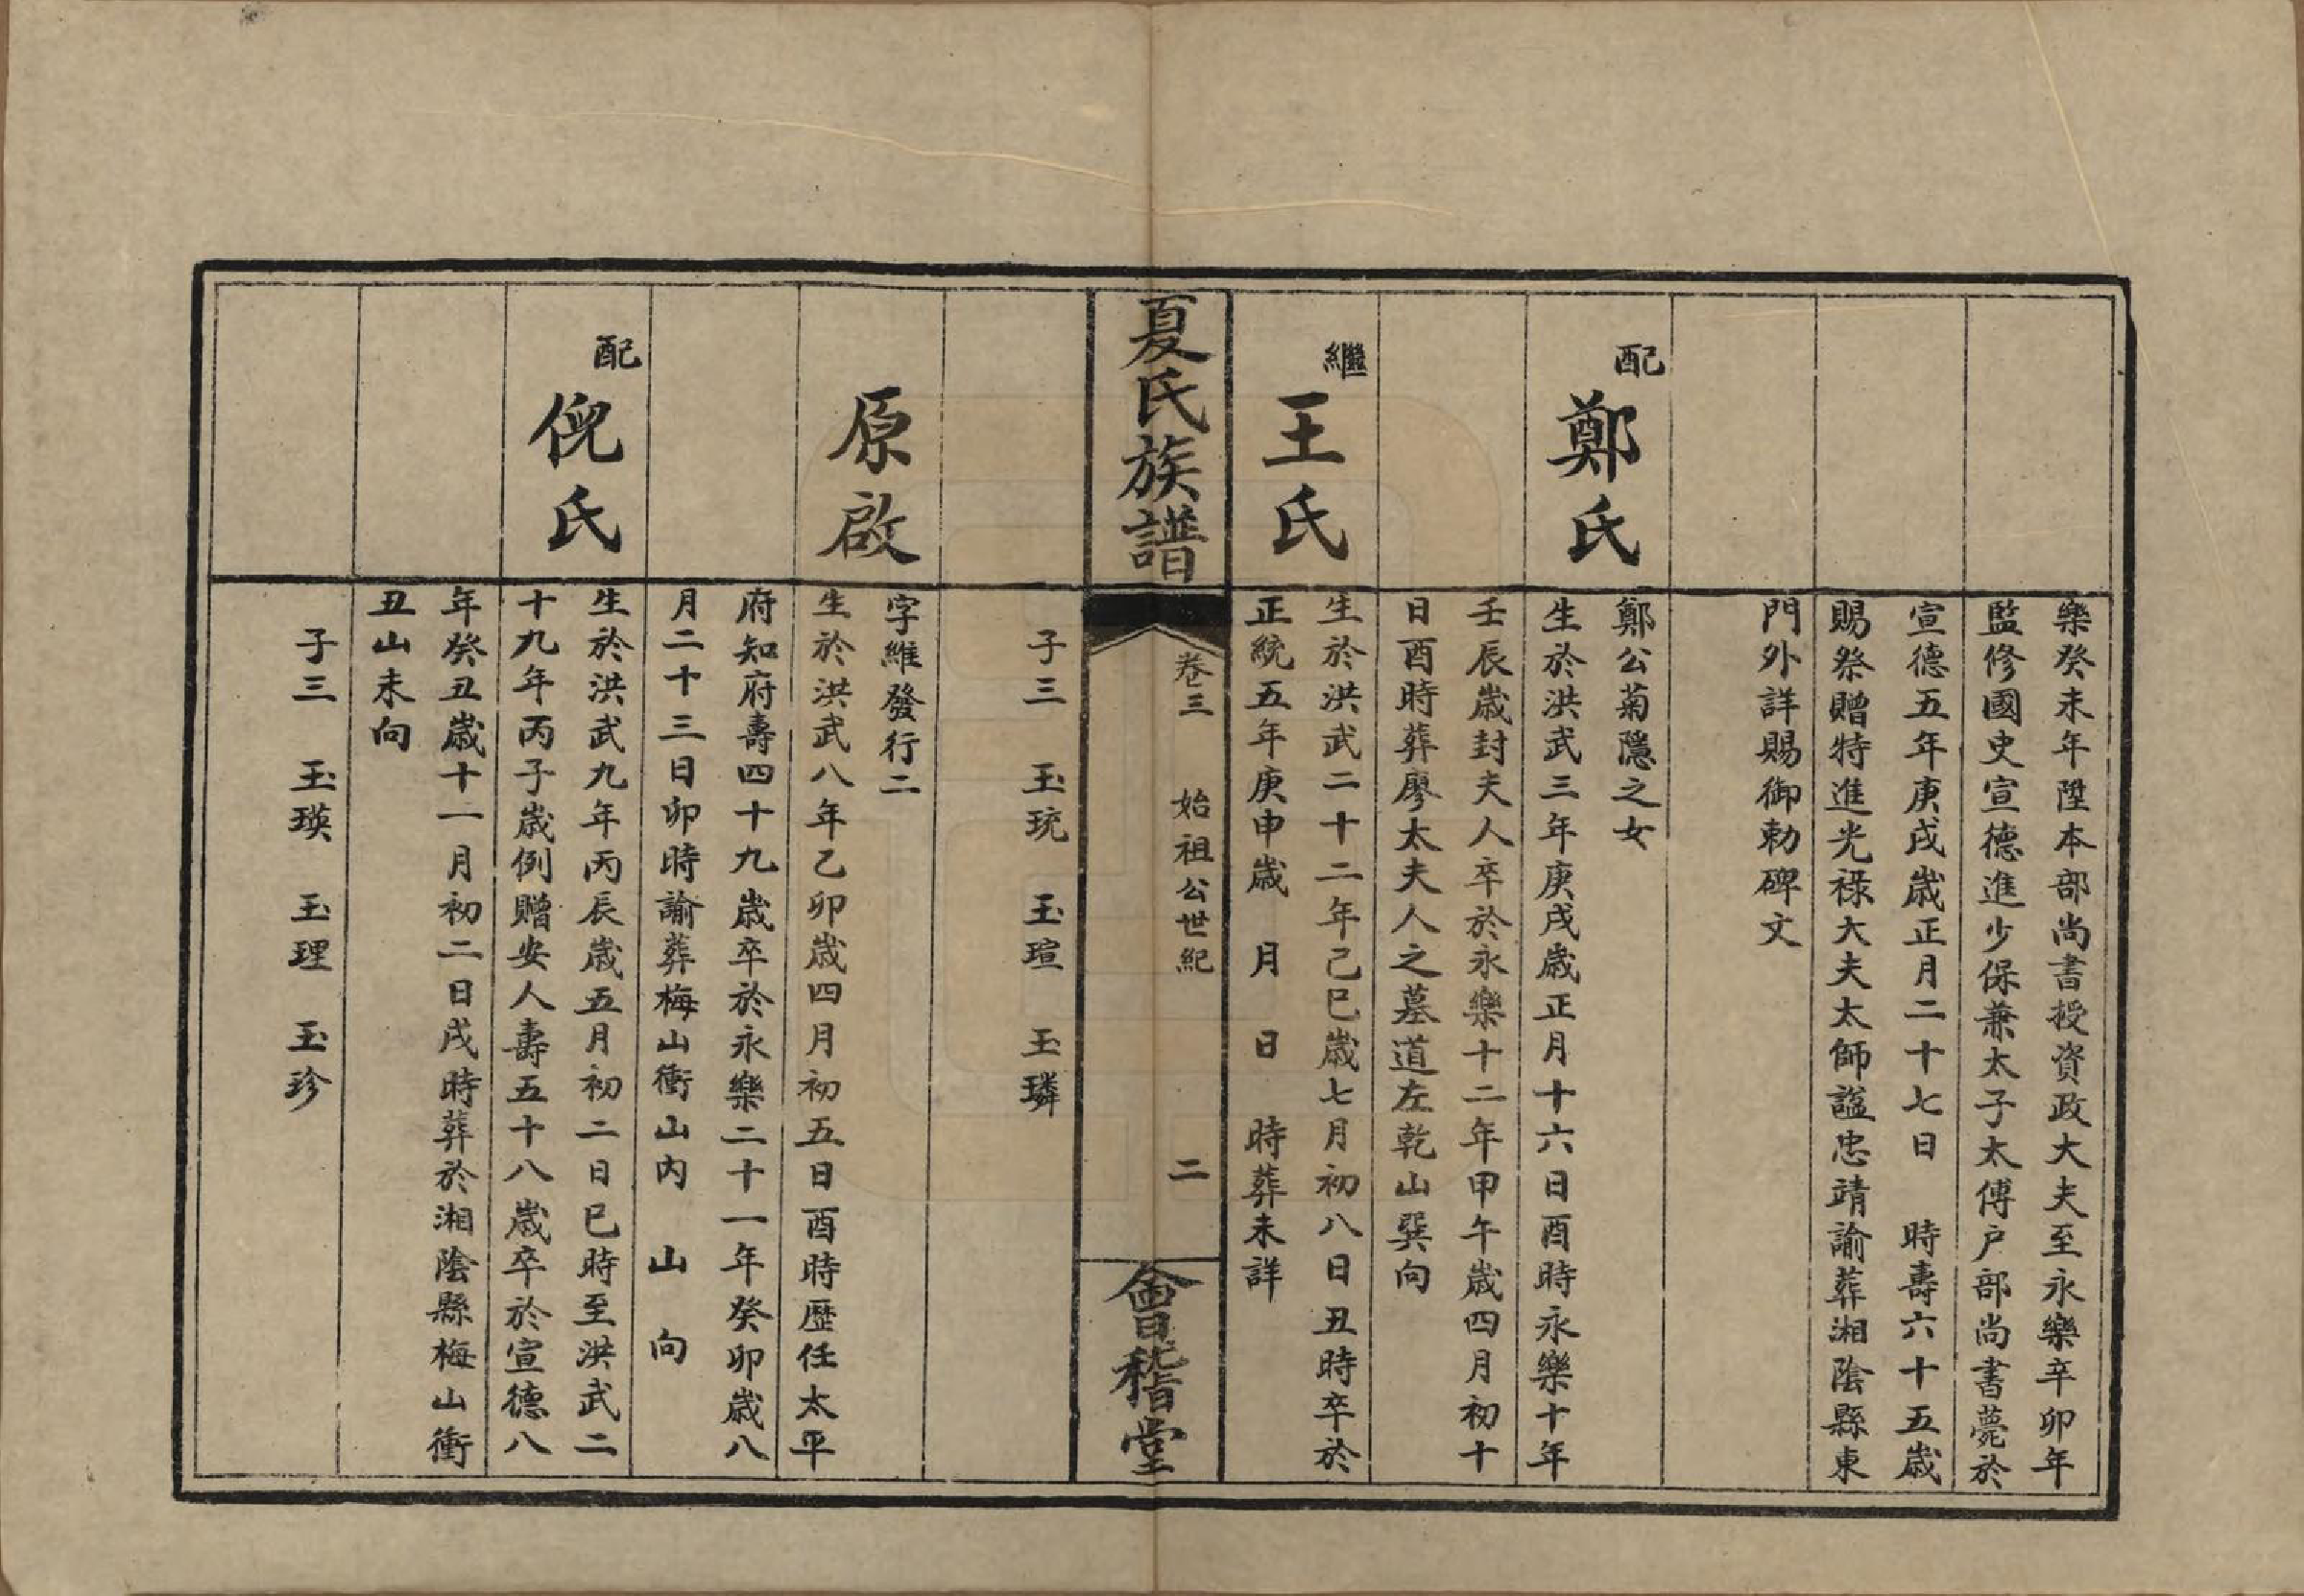 樂癸未年陞本部尚書授資政大夫至永樂卒卯年
監修國史宣德進少保兼太子太傅户部尚書薨於
宣德五年庚戌歲正月二十七日　時壽六十五歲
賜祭贈特進光禄大夫太師謚忠靖諭葬湘陰縣東
門外詳賜御勅碑文
配
鄭氏
鄭公菊隱之女
生於洪武三年庚戌歲正月十六日酉時永樂十年
壬辰歲封夫人卒於永樂十二年甲午歲四月初十
日酉時葬廖太夫人之墓道左乾山巽向
繼
王氏
生於洪武二十二年己巳歲七月初八日丑時卒於
正統五年庚申歲　月　日　時葬未詳
夏氏族譜
卷三　始祖公世紀　二
會稽堂
子三　玉珫　玉瑄　玉璘
原啟
字維發行二
生於洪武八年乙卯歲四月初五日酉時歷任太平
府知府壽四十九歲卒於永樂二十一年癸卯歲八
月二十三日卯時諭葬梅山衝山内　山　向
配
倪氏
生於洪武九年丙辰歲五月初二日巳時至洪武二
十九年丙子歲例贈安人壽五十八歲卒於宣德八
年癸丑歲十一月初二日戌時葬於湘陰縣梅山衝
丑山未向
子三　玉瑛　玉理　玉珍